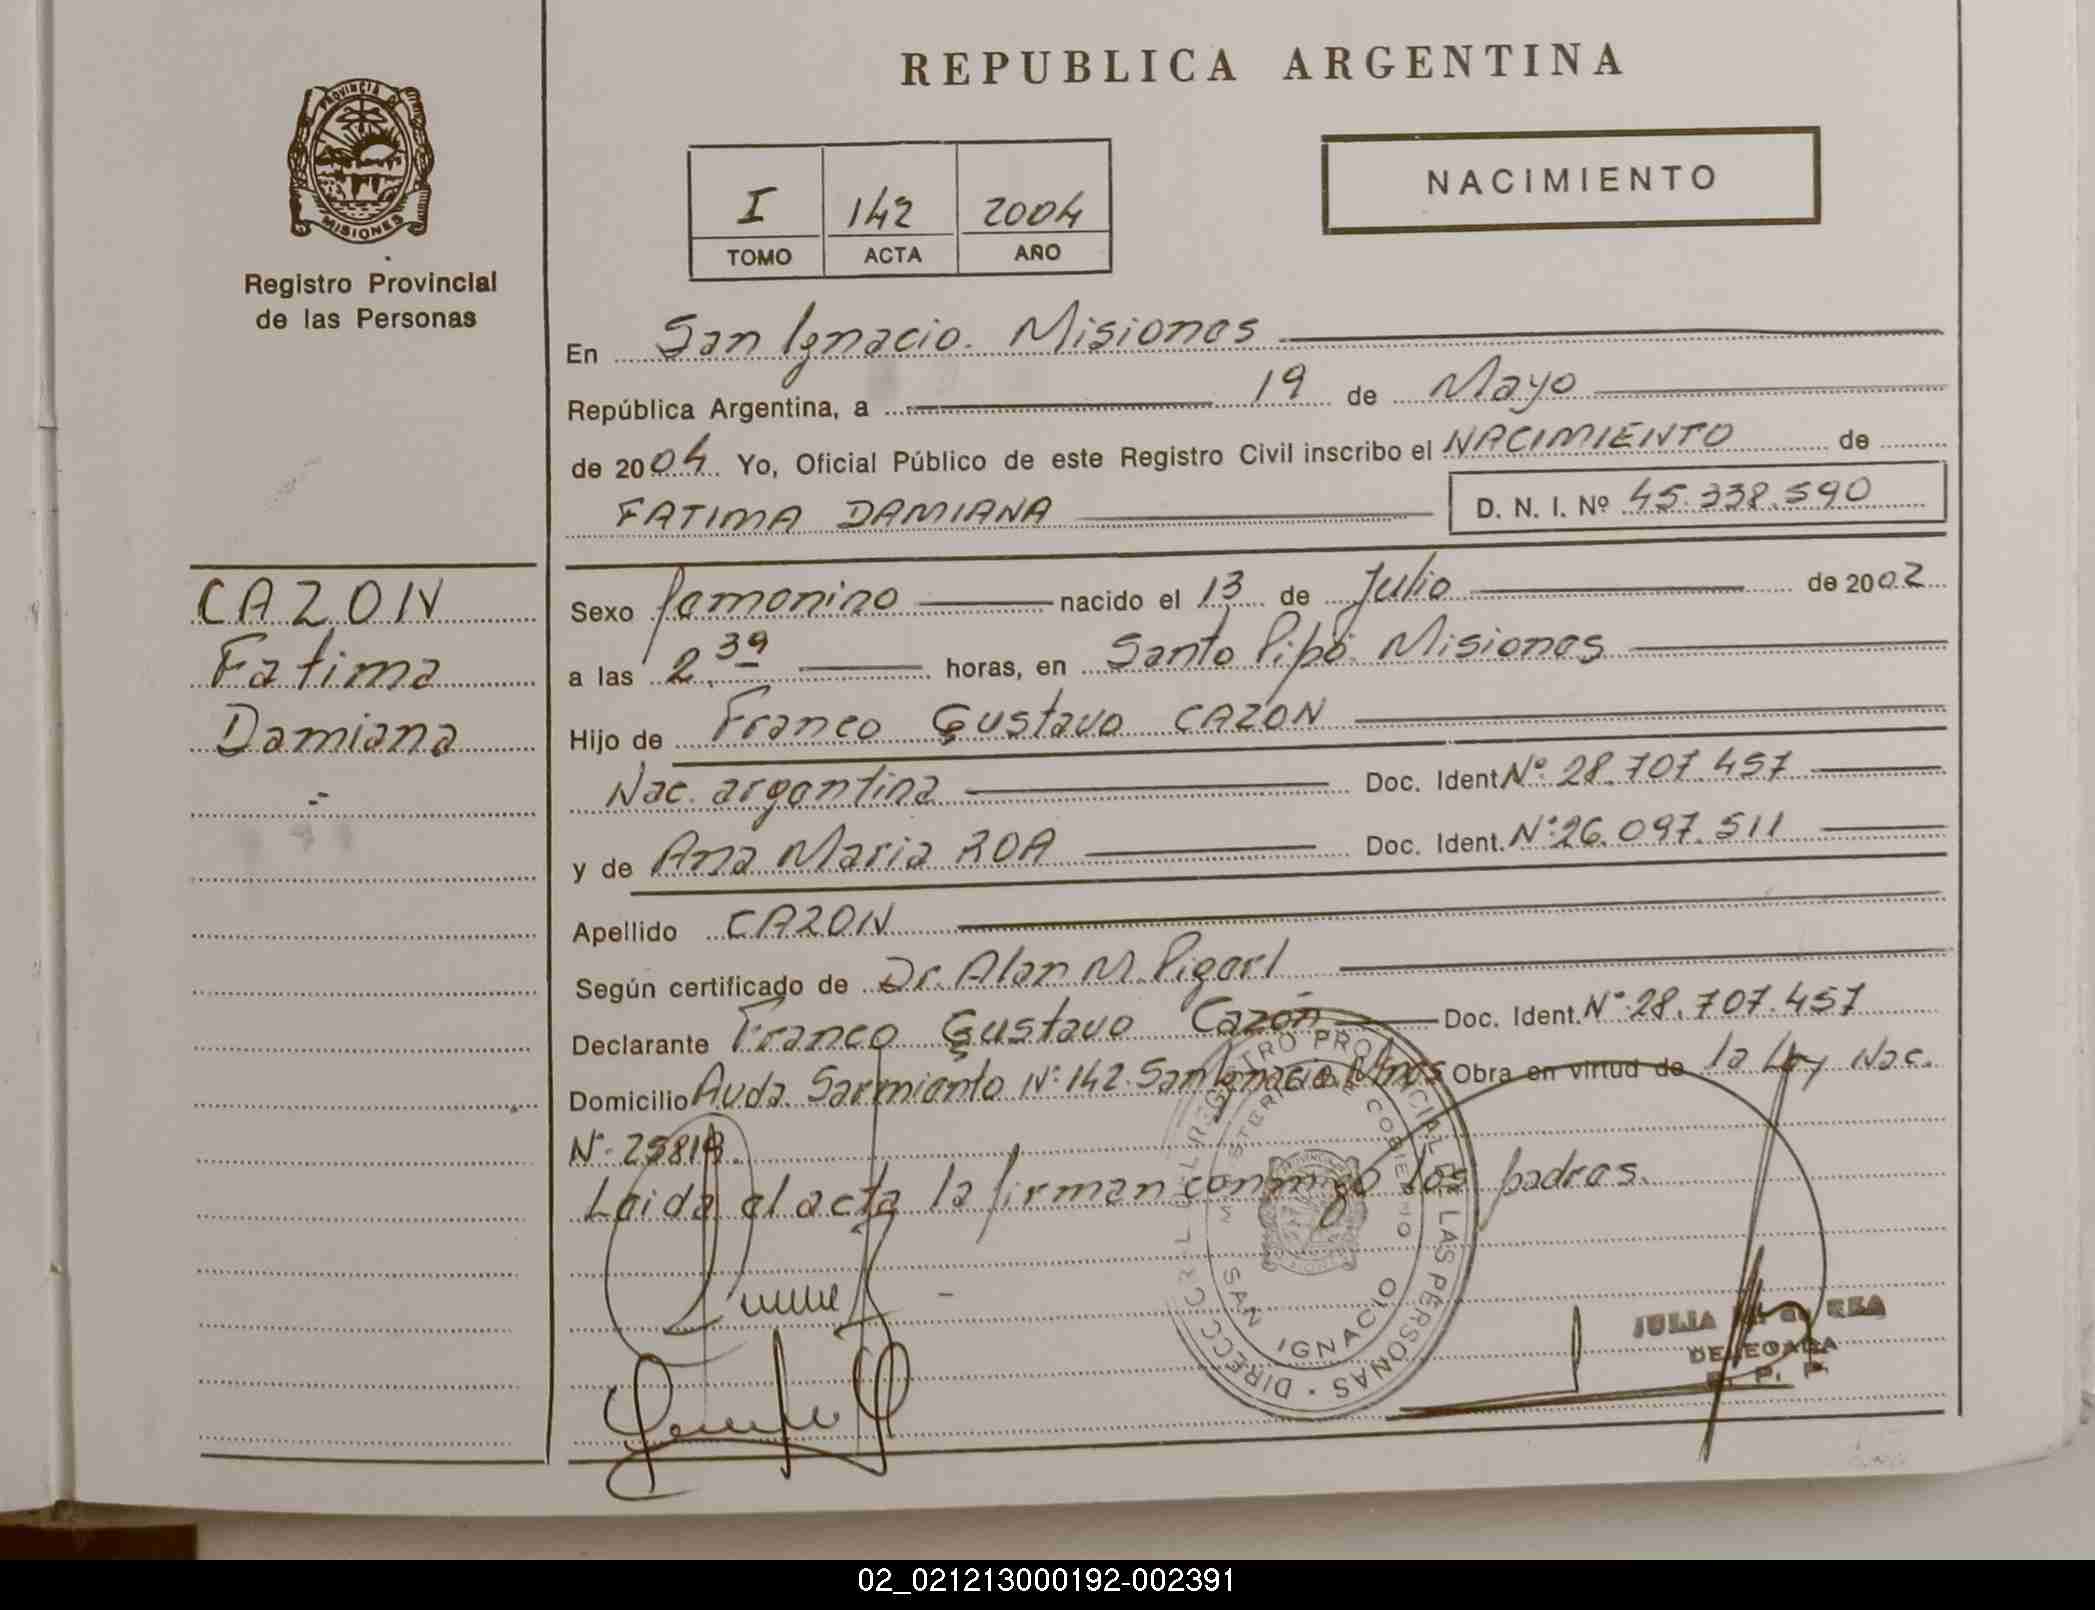 REPUBLICA ARGENTINA
PROVINCIA DE
MISIONES
Registro Provincial
de las Personas
I 142 2004
TOMO ACTA AÑO
NACIMIENTO
En San Ignacio. Misiones
República Argentina, a 19 de Mayo
de 2004. Yo, Oficial Público de este Registro Civil inscribo el NACIMIENTO de
FATIMA DAMIANA D. N. I. Nº 45.338.590
CAZON
Fatima
Damiana
Sexo femenino nacido el 13 de Julio de 2002
a las 2.39 horas, en Santo Pipó. Misiones
Hijo de Franco Gustavo CAZON
Nac. argentina Doc. Ident. Nº 28.707.457
y de Ana Maria ROA Doc. Ident. Nº 26.097.511
Apellido CAZON
Según certificado de Dr. Alan M.
Declarante Franco Gustavo Cazón Doc. Ident. Nº 28.707.457
Domicilio Avda. Sarmiento Nº 142. San Ignacio. Mnes Obra en virtud de la Ley Nac.
Nº 25819.
Leida el acta la firman conmigo los padres.
DIRECC GRAL REGISTRO PROVINCIAL DE LAS PERSONAS
MINISTERIO DE GOBIERNO
SAN IGNACIO
JULIA REA
DELEGADA
R. P. P.
02_021213000192-002391